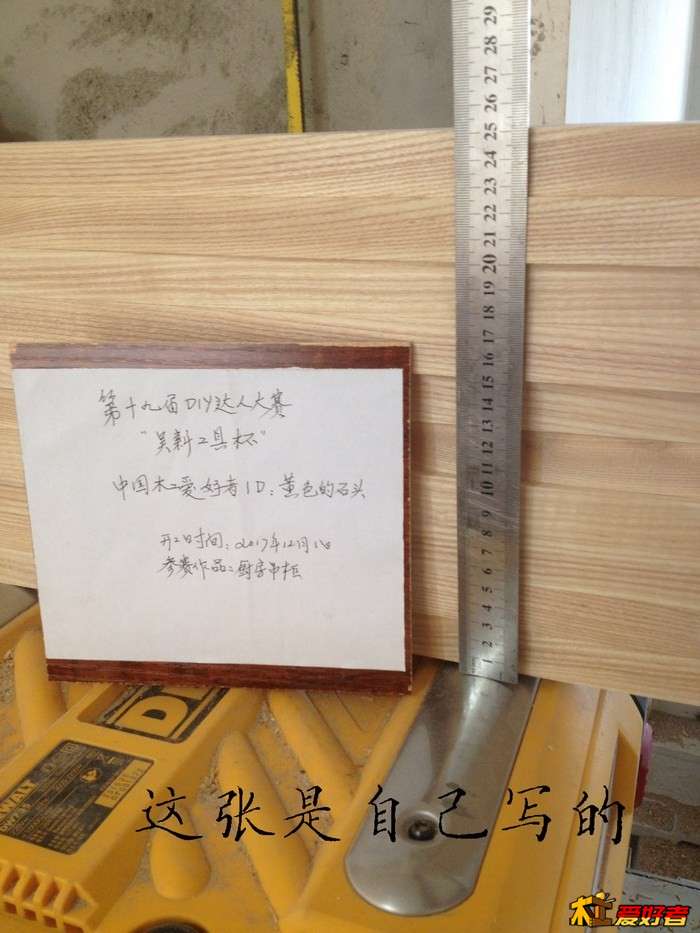 29
28
27
26
25
24
23
22
21
20
19
18
17
16
15
14
13
12
11
10
9
8
7
6
5
4
3
2
1
第十九届DIY达人大赛
"昊料工具杯"
中国木工爱好者ID：黄色的石头
开工时间：2017年12月1日
参赛作品：厨房吊柜
这张是自己写的
木工爱好者